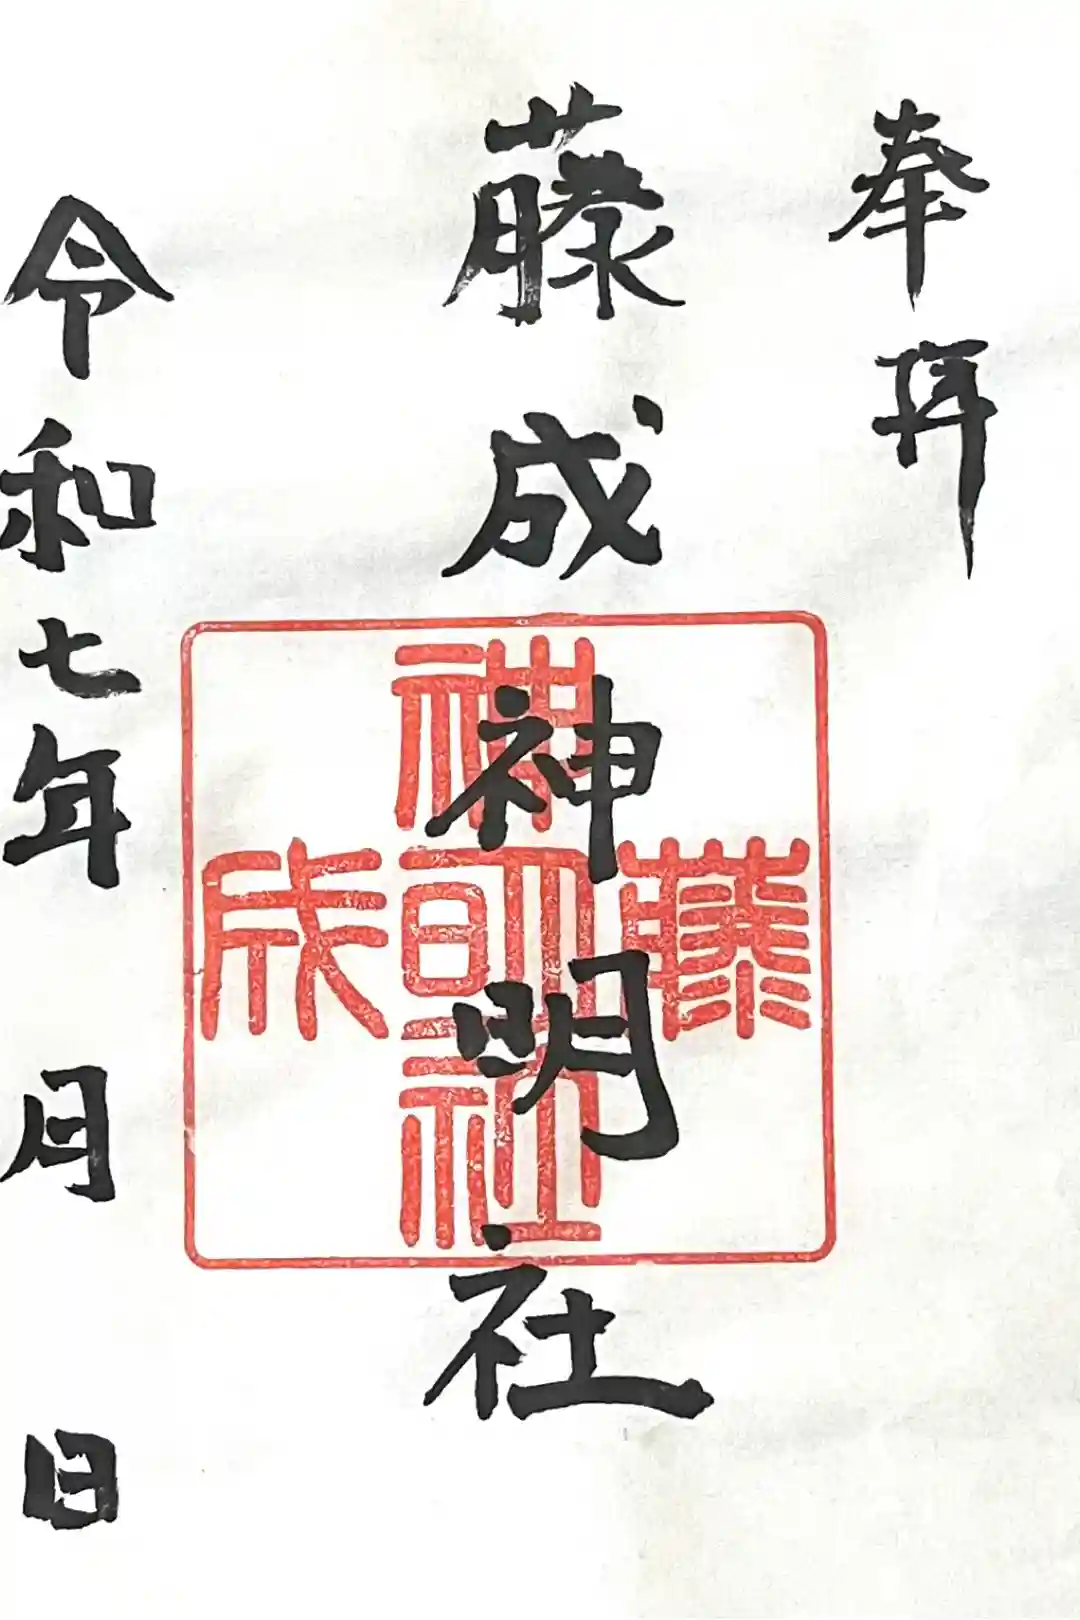 奉拝
藤成神明社
藤成神明社
令和七年 月 日